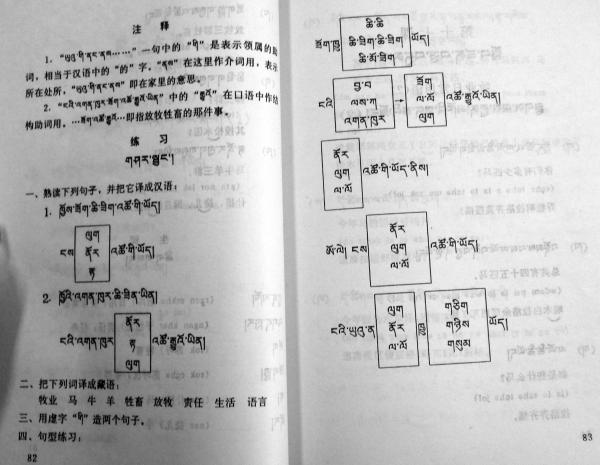 注 释
1. "ཡུལ་གི་ནང་ནས……" 一句中的 "གི" 是表示领属的助
词，相当于汉语中的 "的" 字。"ནས" 在这里作介词用，表示
所在处所，"ཡུལ་གི་ནང་ནས" 即在家里的意思。
中的 "རྒྱུའོ" 在口语中作结
构助词用，即指放牧牲畜的那件事。
练 习
གཤར་སྦྱང་།
一、熟读下列句子，并把它译成汉语：
1. ཁྱོས་ཟོག་ཆི་ཟིག་འཚོ་གི་ཡོད།
ངས
ལུག
ནོར
རྟ
འཚོ་གི་ཡོད།
2. ཁྱོའི་འགན་ཁུར་ཆི་ཟིན་ཡིན།
ངའི་འགན་ཁུར
ནོར
རྟ
ལུག
འཚོ་རྒྱུའོ་ཡིན།
二、把下列词译成藏语：
牧业 马 牛 羊 牲畜 放牧 责任 生活 语言
三、用虚字 "གི" 造两个句子。
四、句型练习：
82
ཟོག་ཁྱུ
ཆི་ཆི
ཆི་ཟིག་ཆི་ཟིག
ཆི་མོ་ཟིག
ཡོད།
ངའི
བྱ་བ
ལས་ཀ
འགན་ཁུར
→
ཟོག
ལ་ལོ
ལུག
འཚོ་རྒྱུའོ་ཡིན།
ནོར
ལུག
ལ་ལོ
འཚོ་གི་ཡོད་ནིས།
ཨོ་ལེ། ངས
ནོར
ལུག
ལ་ལོ
འཚོ་གི་ཡོད།
ངའི་ཡུལ་ན
ལུག
ནོར
ལ་ལོ
ཁྱུ
གཅིག
གཉིས
གསུམ
ཡོད།
83